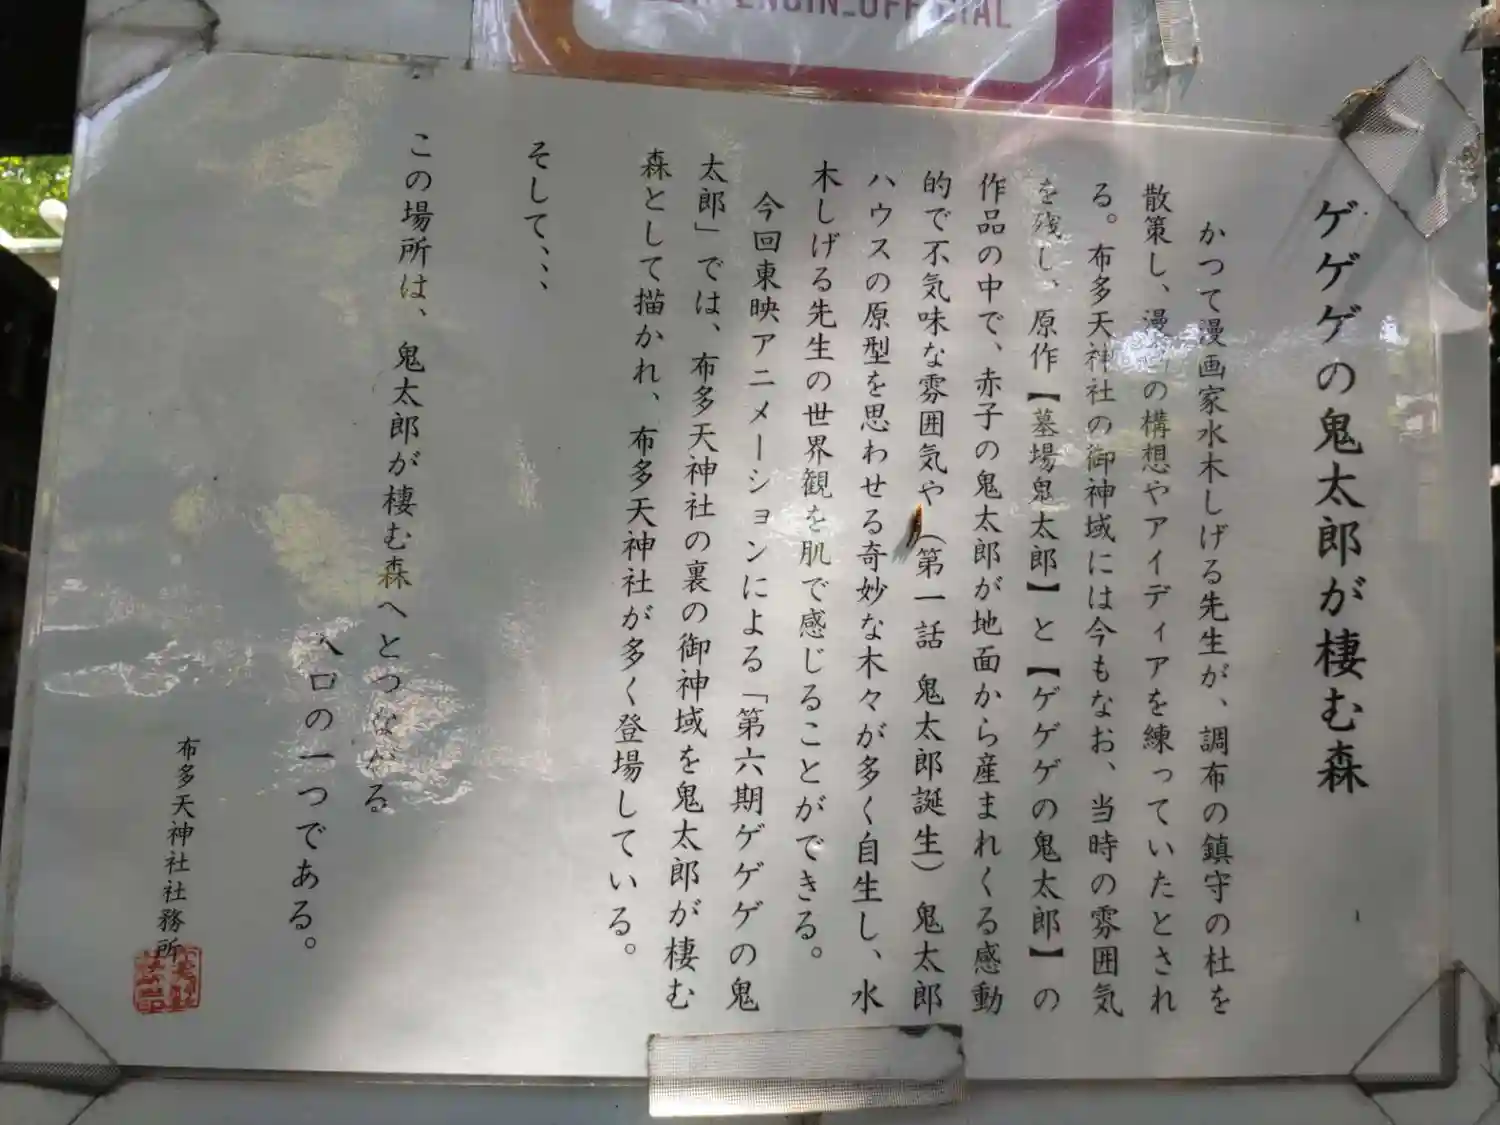 ENGIN_OFFICIAL
ゲゲゲの鬼太郎が棲む森
かつて漫画家水木しげる先生が、調布の鎮守の杜を
散策し、漫の構想やアイディアを練っていたとされ
る。布多天神社の御神域には今もなお、当時の雰囲気
を残し、原作【墓場鬼太郎】と【ゲゲゲの鬼太郎】の
作品の中で、赤子の鬼太郎が地面から産まれくる感動
的で不気味な雰囲気や（第一話 鬼太郎誕生）鬼太郎
ハウスの原型を思わせる奇妙な木々が多く自生し、水
木しげる先生の世界観を肌で感じることができる。
今回東映アニメーションによる「第六期ゲゲゲの鬼
太郎」では、布多天神社の裏の御神域を鬼太郎が棲む
森として描かれ、布多天神社が多く登場している。
そして、、、
この場所は、鬼太郎が棲む森へとつながる
入口の一つである。
布多天神社社務所